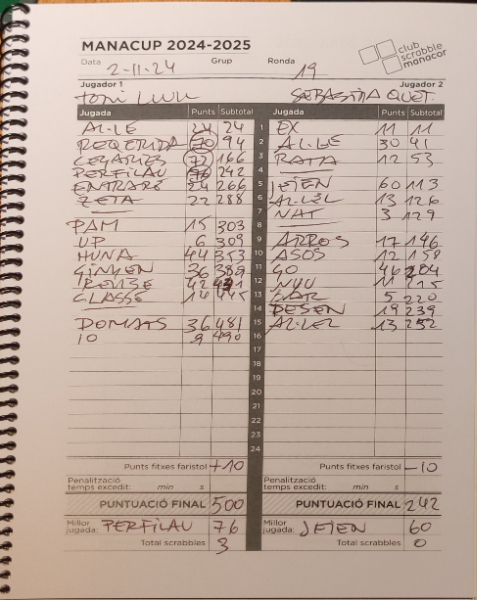 MANACUP 2024-2025
club scrabble manacor
Data 2-11-24 Grup Ronda 19
Jugador 1 Jugador 2
Toni SEBASTIÀ QUET.
Jugada Punts Subtotal Jugada Punts Subtotal
AL·LE 24 24 1 EX 11 11
REQUERIDA 70 94 2 AL·LE 30 41
CEGARIES 72 166 3 RATA 12 53
PERFILAU 76 242 4
ENTRARÉ 24 266 5 JEIEN 60 113
ZETA 22 288 6 AL·LEL 13 126
7 NAT 3 129
PAM 15 303 8
UP 6 309 9 ARROS 17 146
HUNA 44 353 10 ASOS 12 158
GINYEN 36 389 11 GO 46 204
42 431 12 NYU 11 215
CLASSE 14 445 13 5 220
14 DESEN 19 239
DOMATS 36 481 15 AL·LEL 13 252
IO 9 490 16
17
18
19
20
21
22
23
24
Punts fitxes faristol +10 Punts fitxes faristol -10
Penalització temps excedit: min s Penalització temps excedit: min s
PUNTUACIÓ FINAL 500 PUNTUACIÓ FINAL 242
Millor jugada: PERFILAU 76 Millor jugada: JEIEN 60
Total scrabbles 3 Total scrabbles 0